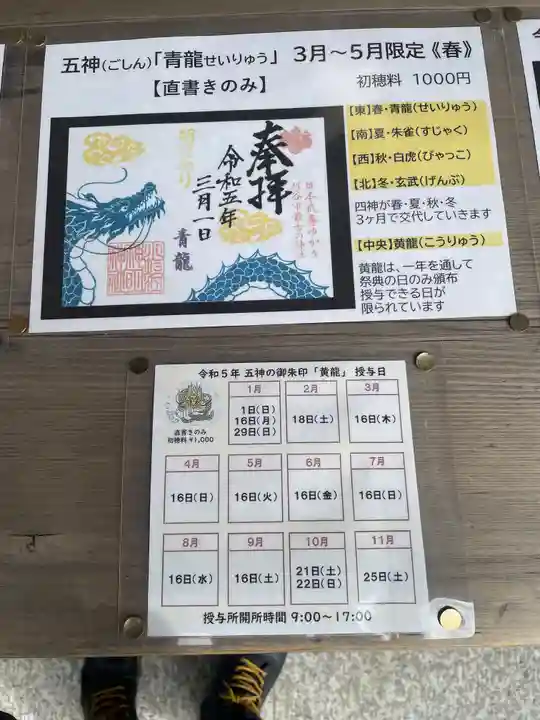 五神(ごしん)「青龍せいりゅう」 3月～5月限定《春》
【直書きのみ】
初穂料 1000円
奉拝
令和五年
三月一日
青龍
【東】春・青龍(せいりゅう)
【南】夏・朱雀(すじゃく)
【西】秋・白虎(びゃっこ)
【北】冬・玄武(げんぶ)
四神が春・夏・秋・冬
3ヶ月で交代していきます
【中央】黄龍(こうりゅう)
黄龍は、一年を通して
祭典の日のみ頒布
授与できる日が
限られています
令和5年 五神の御朱印「黄龍」 授与日
直書きのみ
初穂料¥1,000
1月
1日(日)
16日(月)
29日(日)
2月
18日(土)
3月
16日(木)
4月
16日(日)
5月
16日(火)
6月
16日(金)
7月
16日(日)
8月
16日(水)
9月
16日(土)
10月
21日(土)
22日(日)
11月
25日(土)
授与所開所時間 9:00～17:00